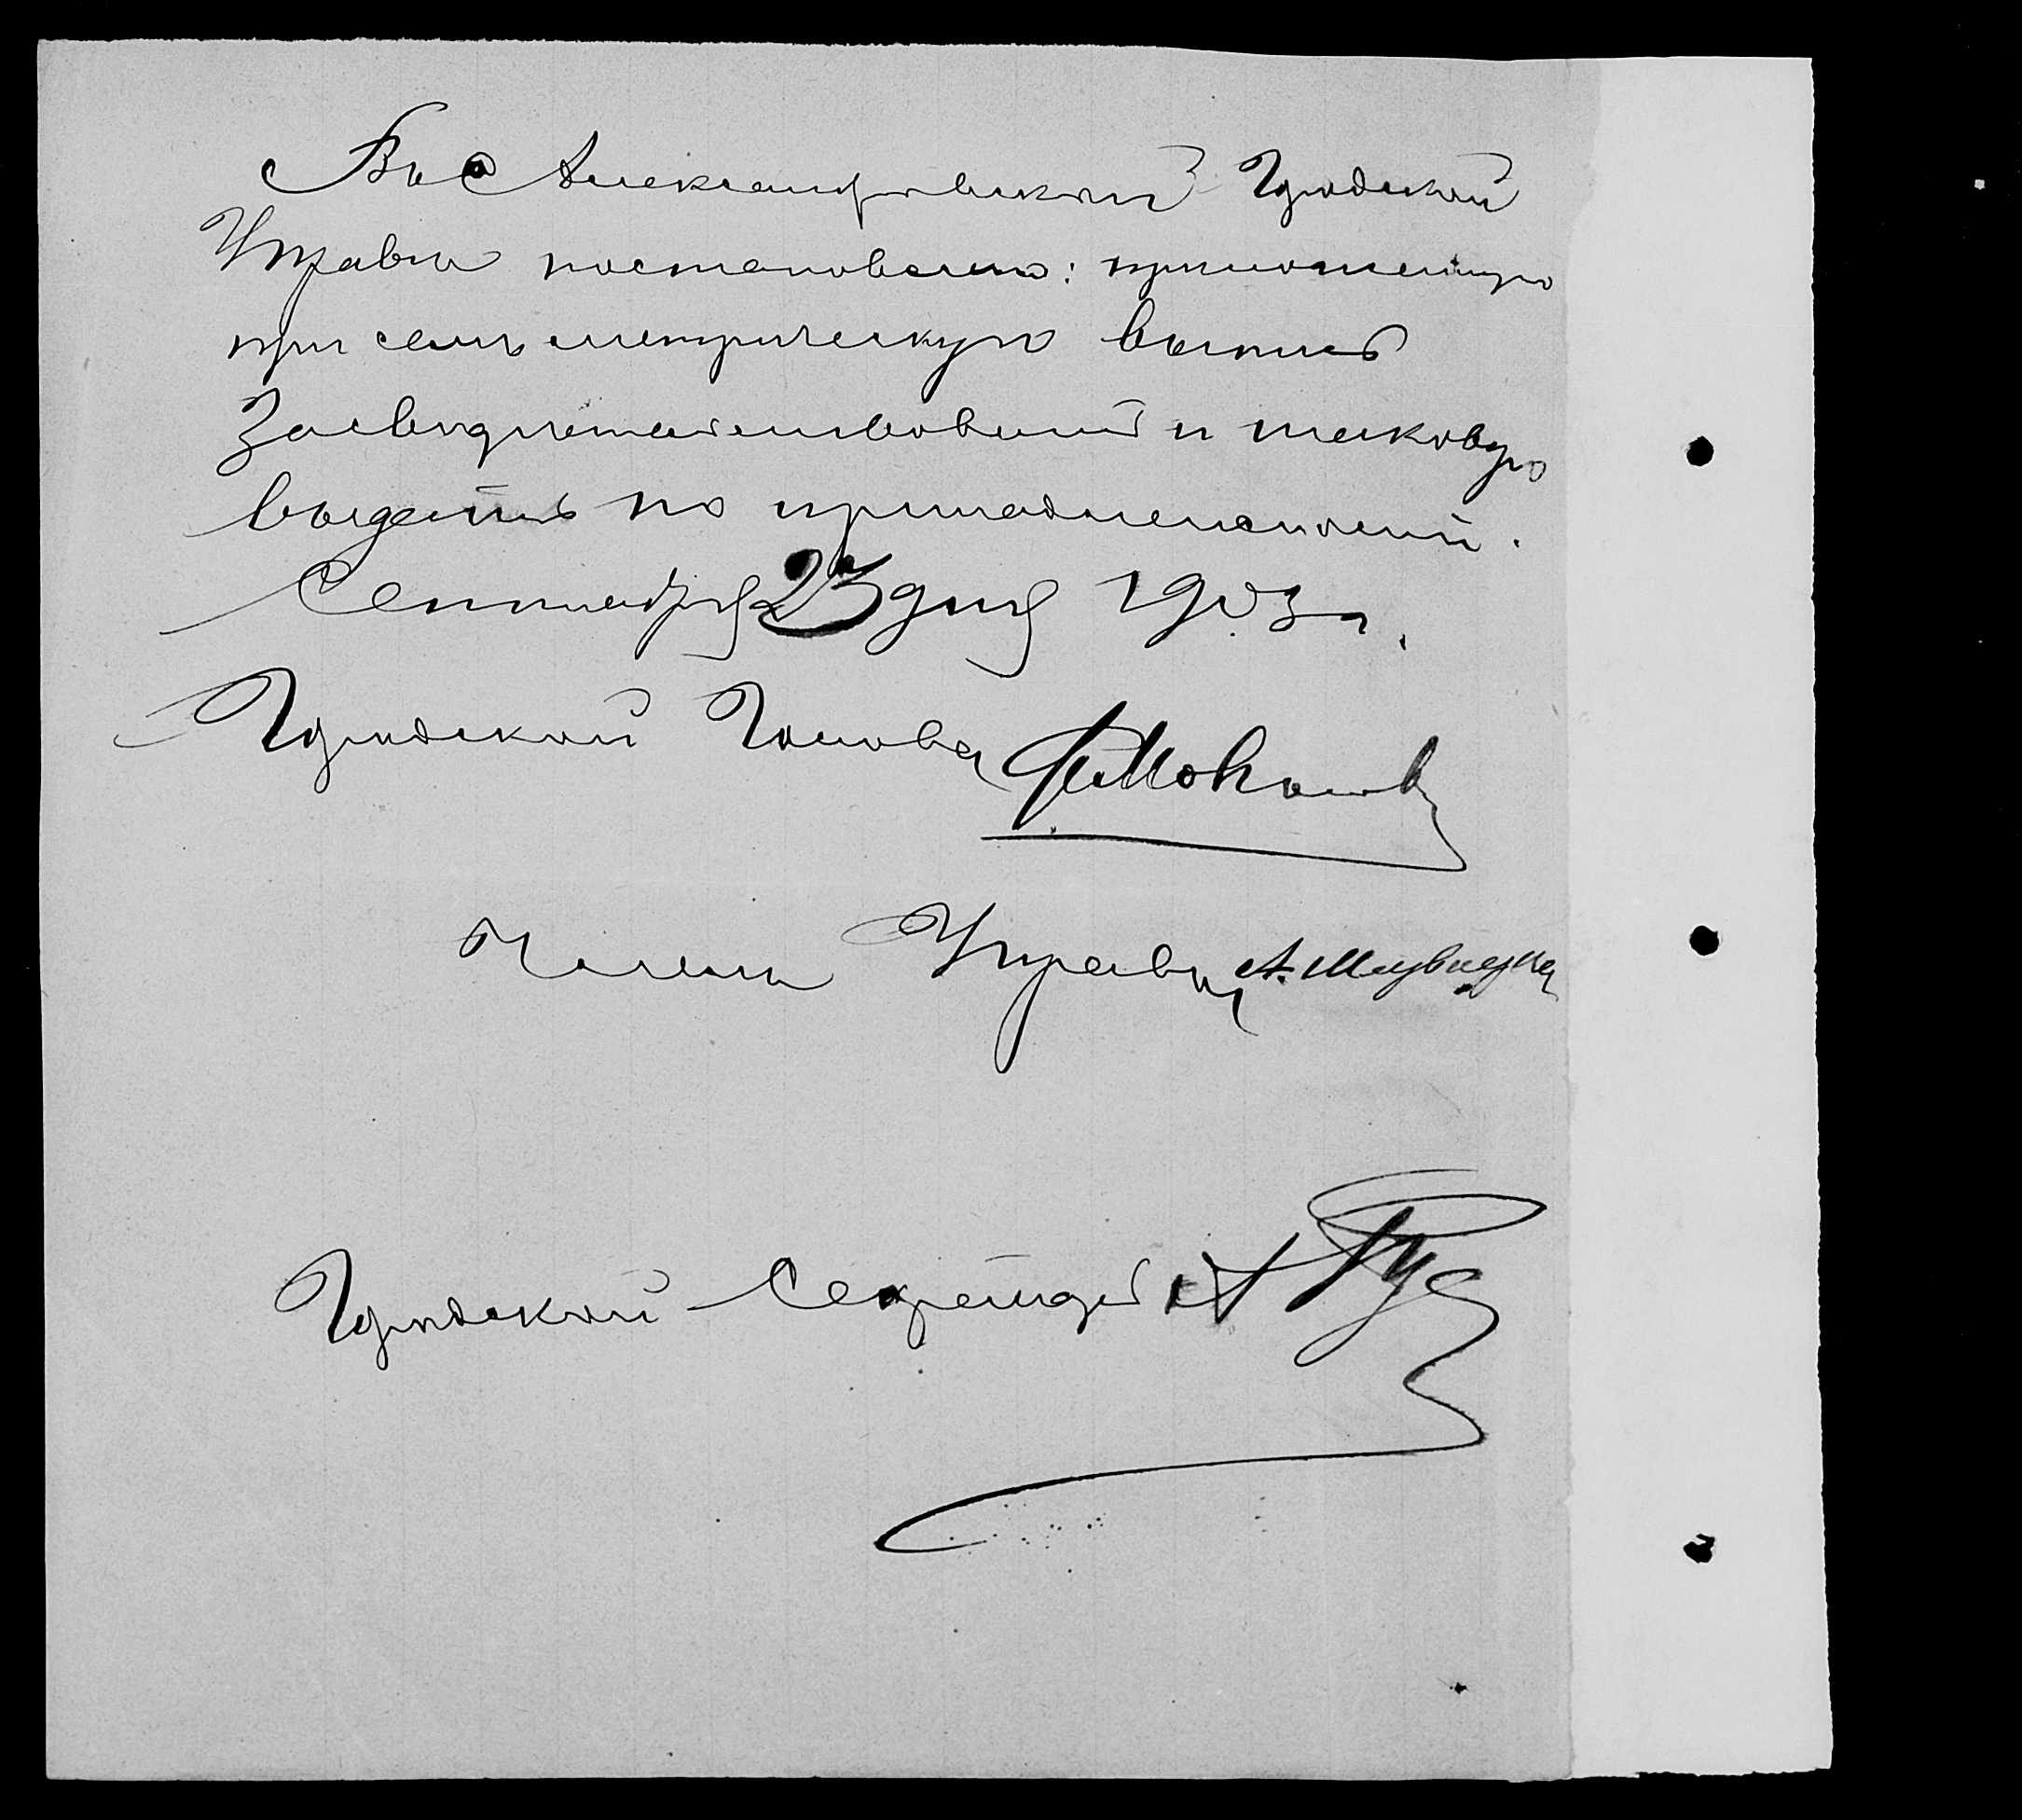 Въ Александровской Городской
Управѣ постановлено: приложенную
при семъ метрическую выпись
Засвидѣтельствовать и таковую
выдать по принадлежности.
Сентября 23 дня 1903 г.
Городской Голова
Членъ Управы А.
Городской Секретарь А